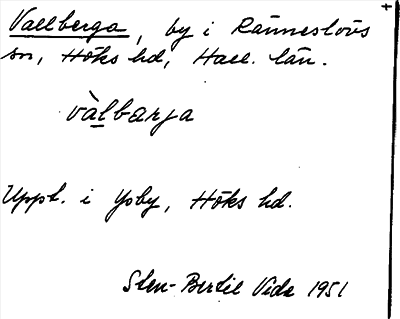 Vallberga, by i Ränneslövs
sn, Höks hd, Hall. län.
vàlbærja
Uppt. i Ysby, Höks hd.
Sten-Bertil Vide 1951